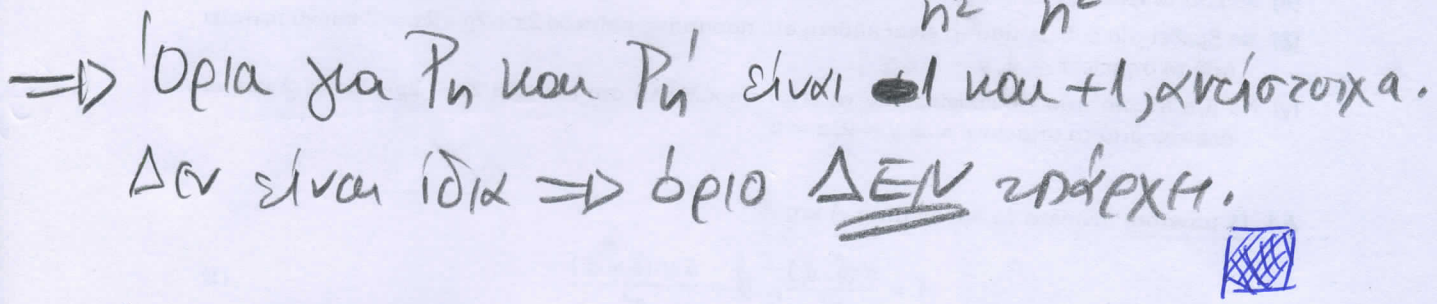 n² n²
⇒ Όρια για Pn και Pn' είναι -1 και +1, αντίστοιχα.
Δεν είναι ίδια ⇒ όριο ΔΕΝ υπάρχει.